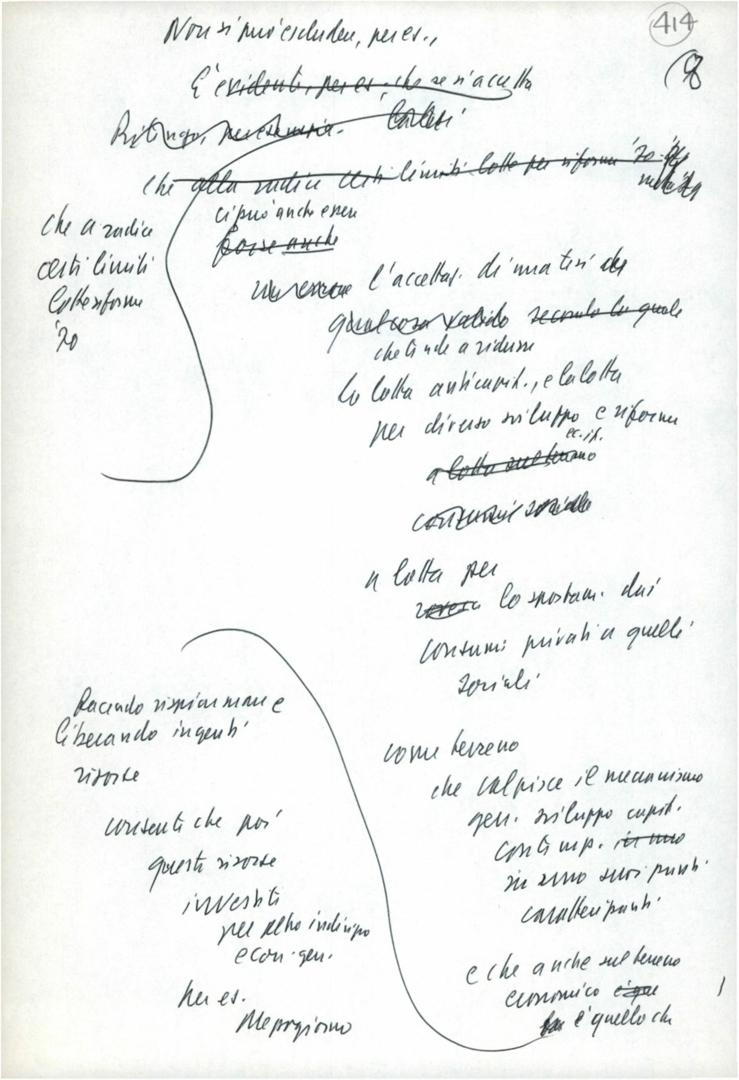 414
8
Non si può escludere, per es.,
E' evidente, per es., che se si accetta
Ritengo, per esempio.
che alla radice certi limiti lotta per riforme '70
ci può anche essere
forse anche
che a radice
certi limiti
lotte riforme
'70
l'accettaz. di una tesi che
qualcosa valido secondo la quale
che tende a ridurre
la lotta anticapit., e la lotta
per diverso sviluppo e riforme
ec. it.
a lotta sul terreno
consumi sociali
a lotta per
lo spostam. dai
consumi privati a quelli
sociali
facendo risparmiare e
liberando ingenti
risorse
consenti che poi
queste risorse
investiti
per altro indirizzo
econ. gen.
Per es.
Mezzogiorno
come terreno
che colpisce il meccanismo
gen. sviluppo capit.
contemp. in uno
in uno suoi punti
caratterizzanti
e che anche sul terreno
economico
è quello che